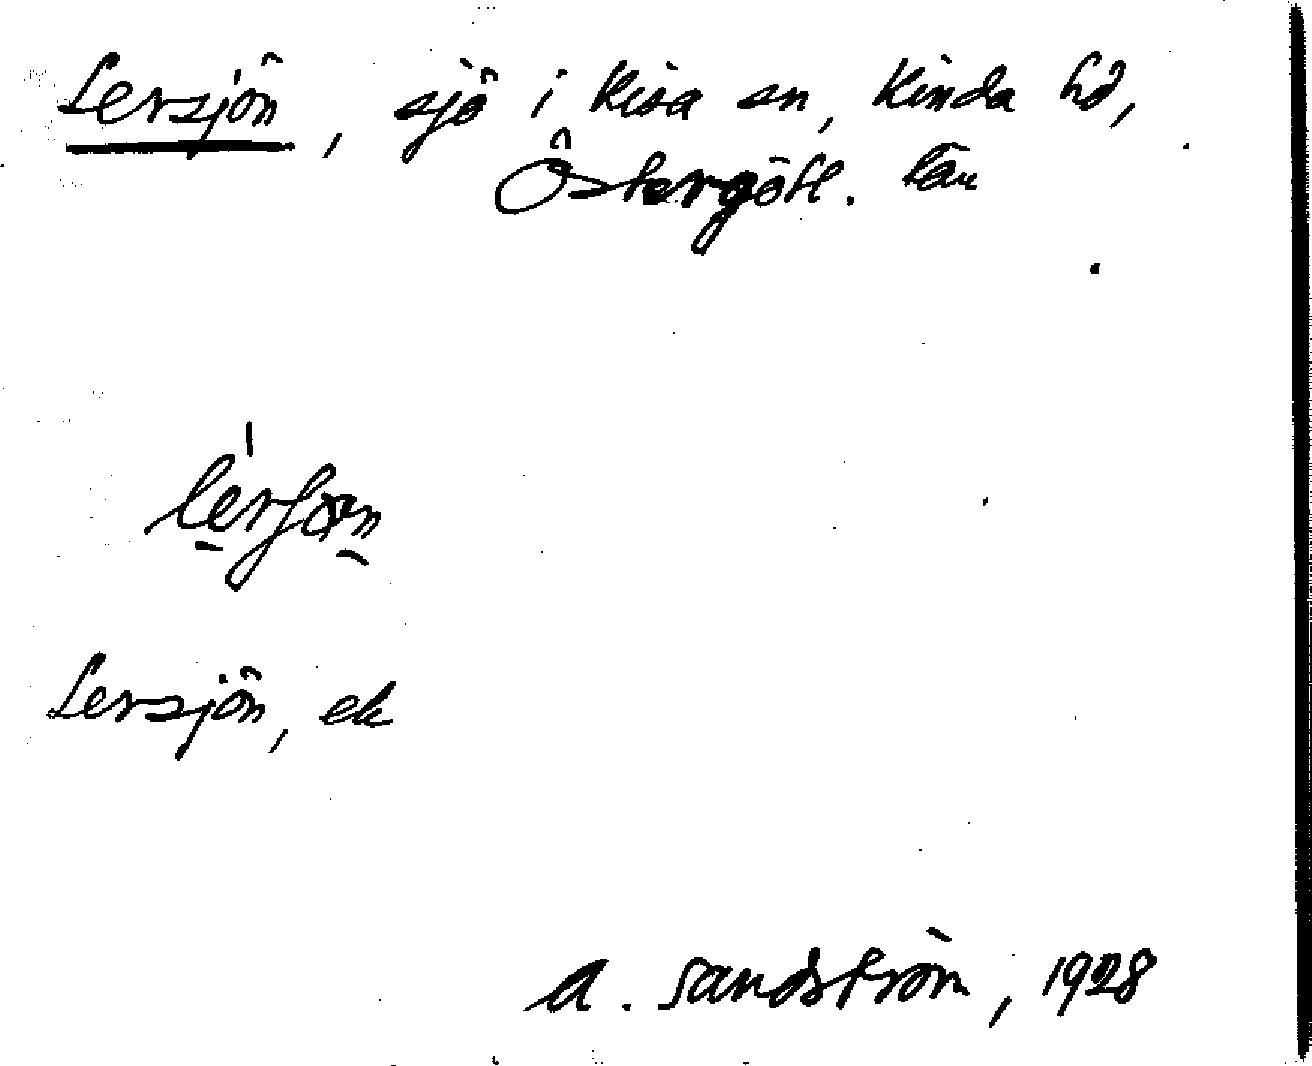 Lersjön, sjö i Kisa sn, Kinda hd,
Östergötl. län
Lersjön, ek
A. Sandström, 1928